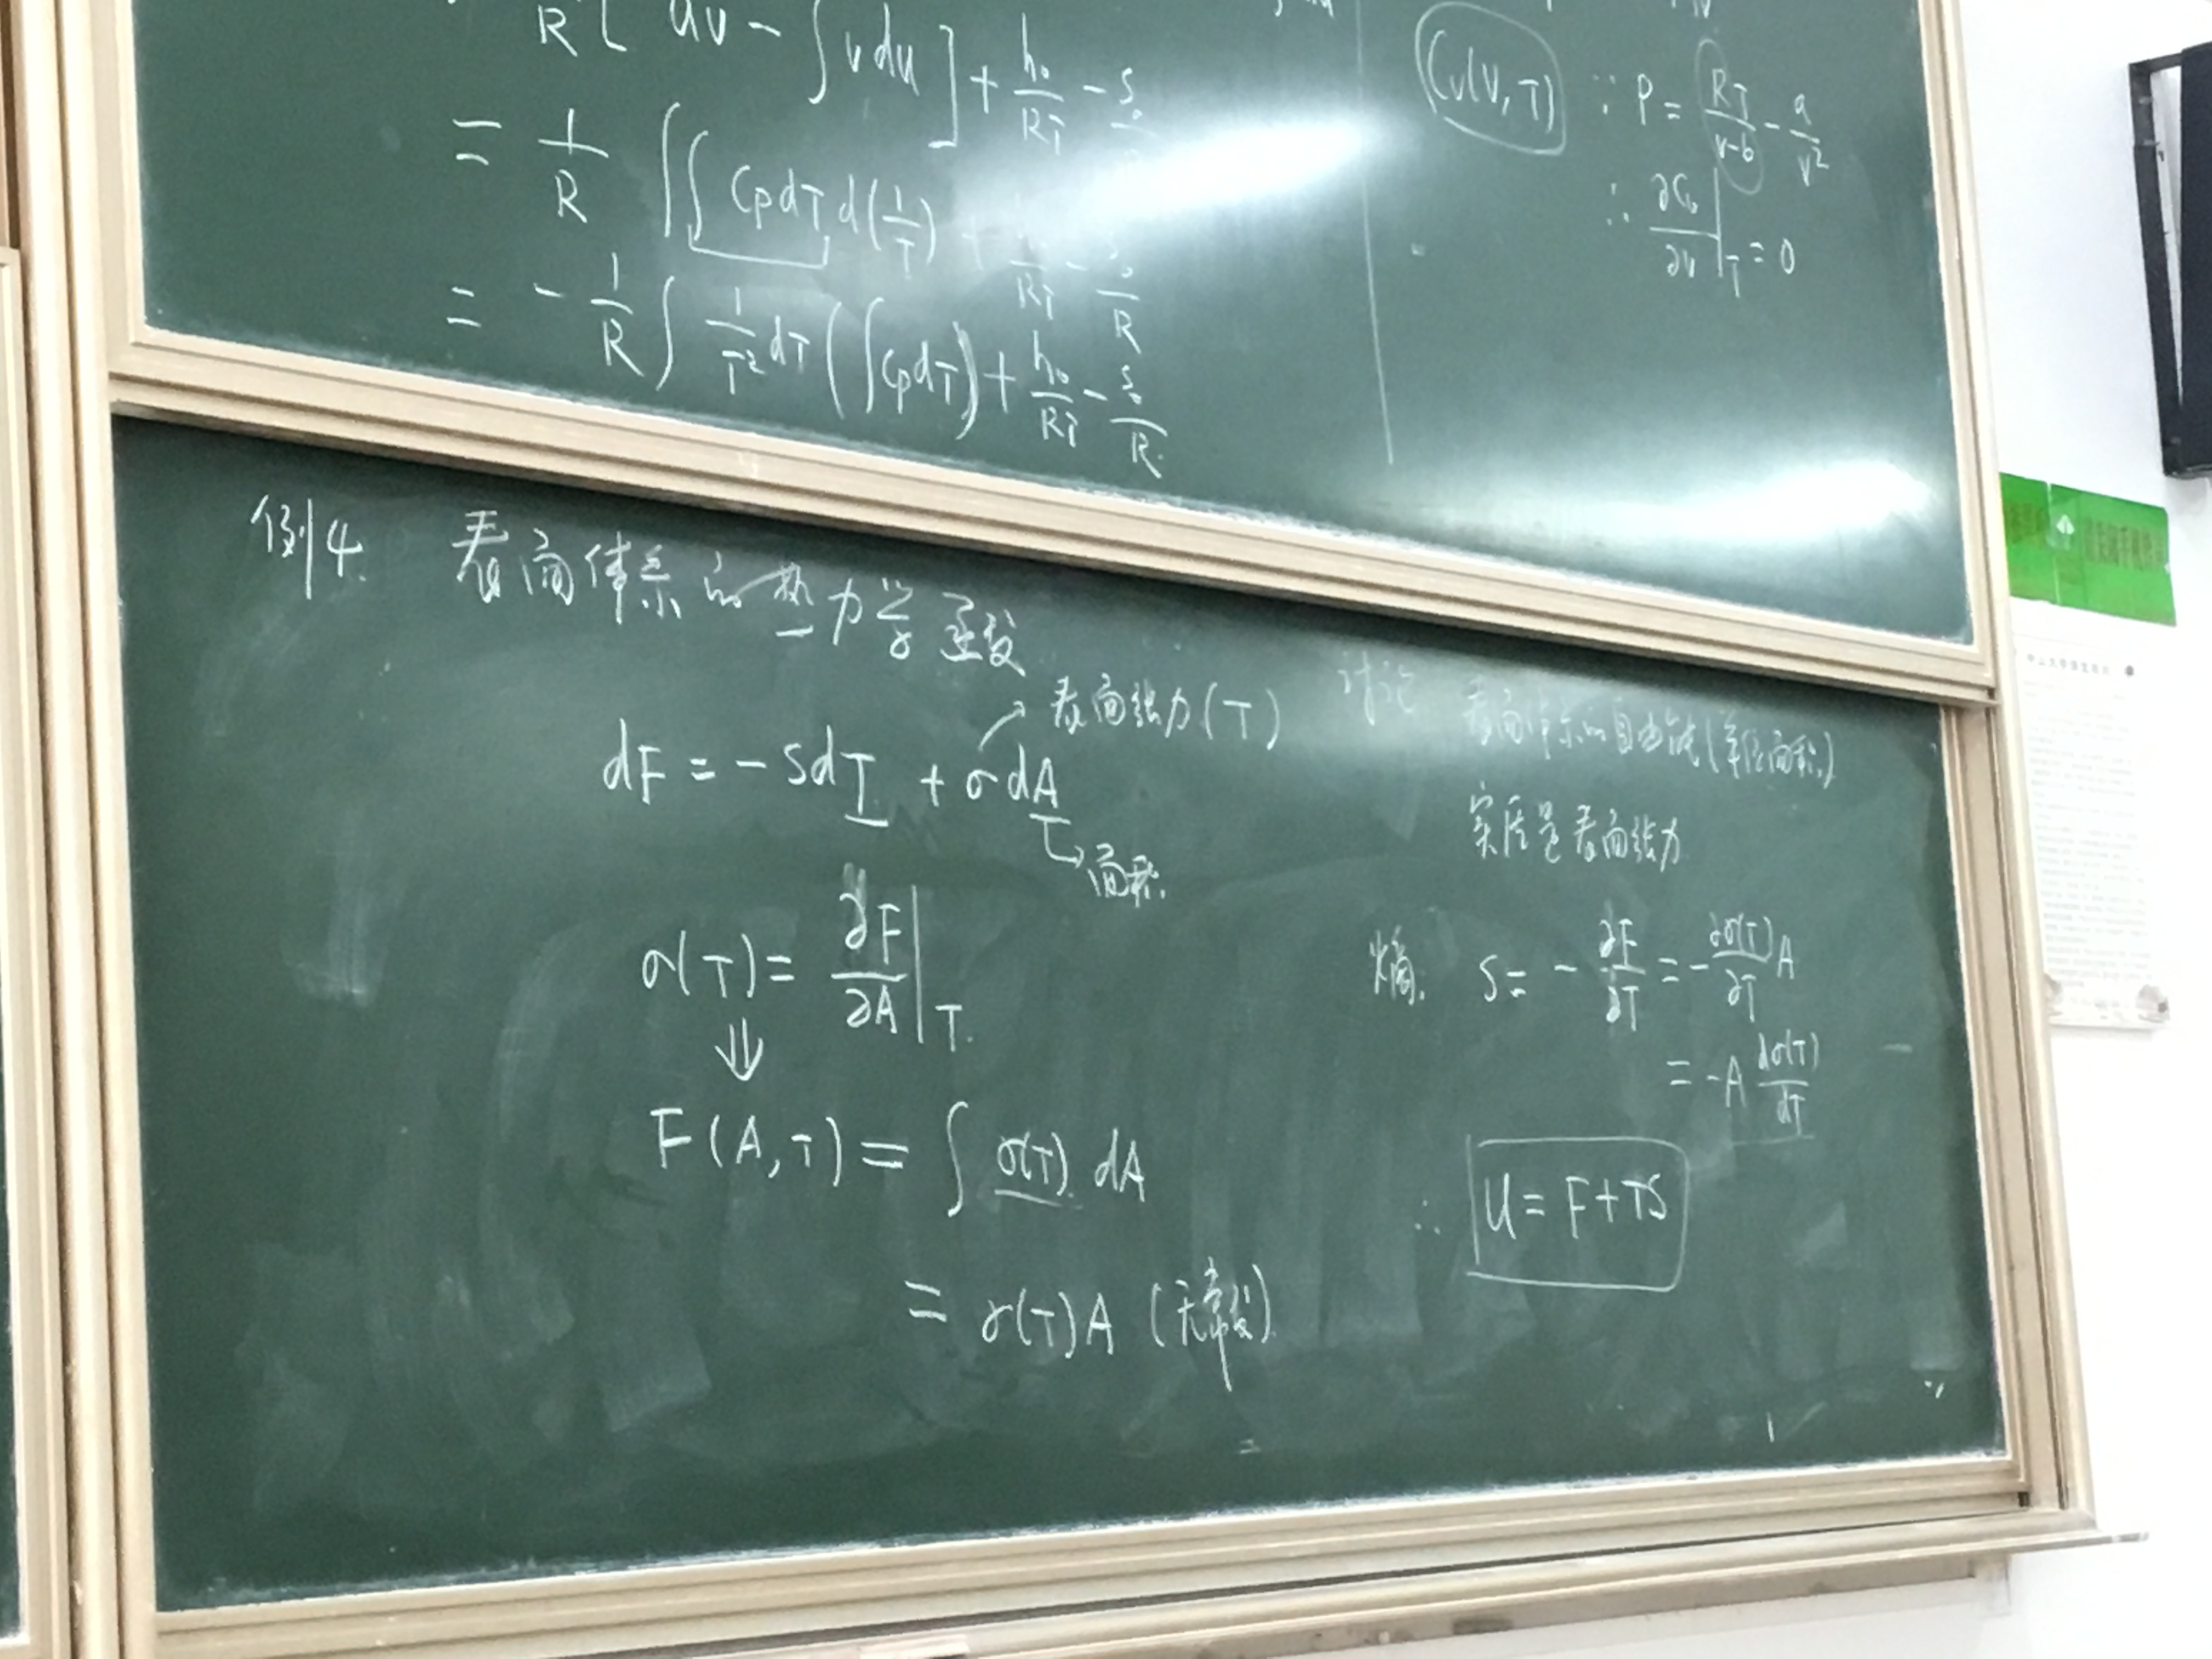 R [ uv - ∫vdu ] + h₀/RT - S₀
= 1/R ∫∫ CpdT d(1/T) + h₀/RT - S₀/R
= - 1/R ∫ 1/T² dT (∫CpdT) + h₀/RT - S₀/R
Cv(V,T)
∵ P = RT/(v-b) - a/v²
∴ ∂Cv/∂v |T = 0
例4. 表面体系的热力学函数
表面张力(T)
dF = -SdT + σdA
面积.
σ(T) = ∂F/∂A |T.
⇓
F(A,T) = ∫ σ(T) dA
= σ(T)A (无常数)
讨论 表面体系的自由能(单位面积)
实质是表面张力
熵. S = - ∂F/∂T = - ∂σ(T)/∂T A
= -A dσ(T)/dT
∴ U = F + TS